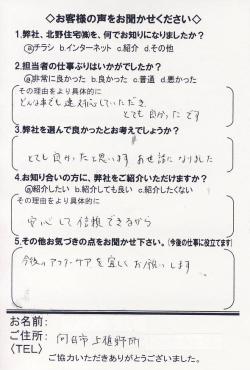 ◇お客様の声をお聞かせください◇
1.弊社、北野住宅㈱を、何でお知りになりましたか?
ⓐチラシ b.インターネット c.紹介 d.その他
2.担当者の仕事ぶりはいかがでしたか?
ⓐ非常に良かった b.良かった c.普通 d.悪かった
その理由をより具体的に
どんな事でも速対応していただき、
とても良かったです
3.弊社を選んで良かったとお考えでしょうか?
とても良かったと思います お世話になりました
4.お知り合いの方に、弊社をご紹介いただけますか?
ⓐ紹介したい b.紹介しても良い c.紹介したくない
その理由をより具体的に
安心して信頼できるから
5.その他お気づきの点をお聞かせ下さい。(今後の仕事に役立てます)
今後のアフターケアを宜しくお願いします
お名前:
ご住所: 向日市上植野町
〈TEL〉
ご協力いただきありがとうございました。